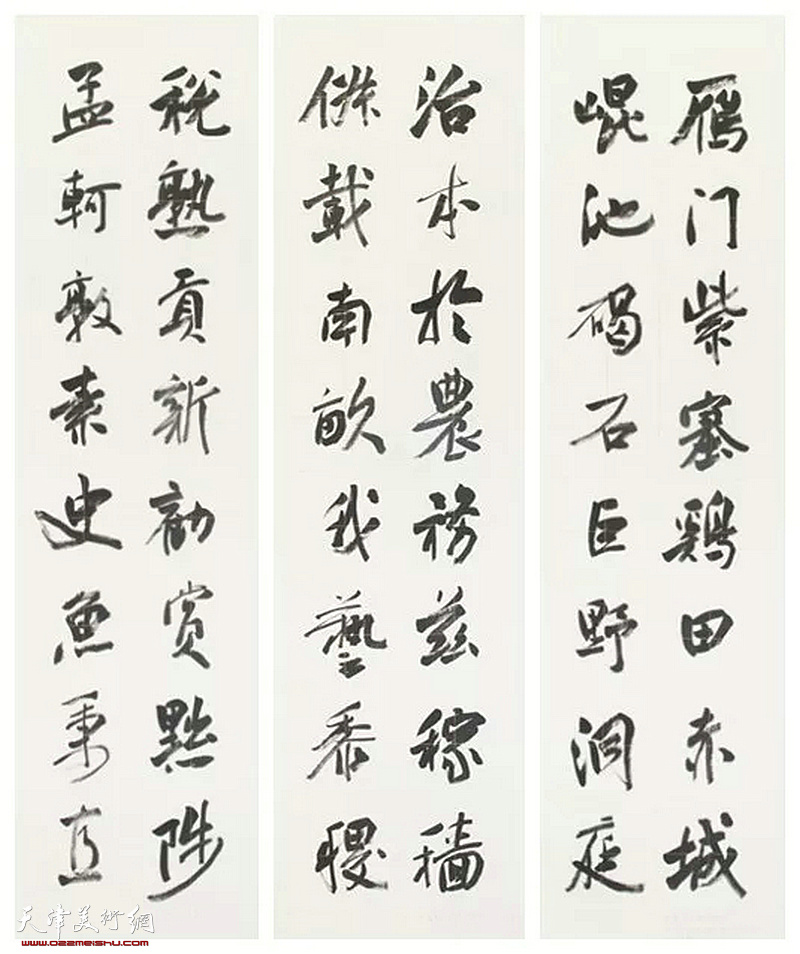 雁门紫塞鸡田赤城
崐池碣石巨野洞庭
治本於農務兹稼穡
俶載南畝我藝黍稷
稅熟貢新勸賞黜陟
孟軻敦素史魚秉直
天津美術網
www.022meishu.com